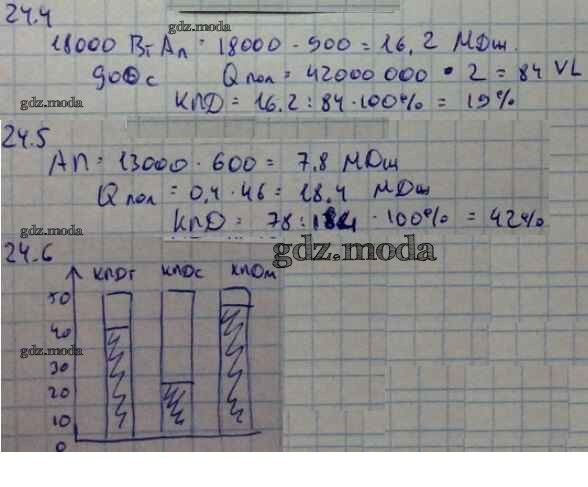 24.4
gdz.moda
18000 Вт Ап = 18000 · 900 = 16,2 МДж.
900 с Qпол = 42000 000 · 2 = 84
gdz.moda
КПД = 16.2 : 84 · 100% = 19%
24.5
АП = 13000 · 600 = 7,8 МДж
Qпол = 0,4 · 46 = 18,4 МДж
gdz.moda
КПД = 78 : 184 · 100% = 42%
24.6
gdz.moda
КПДТ КПДС КПДМ
50
40
gdz.moda
30
20
gdz.moda
10
0